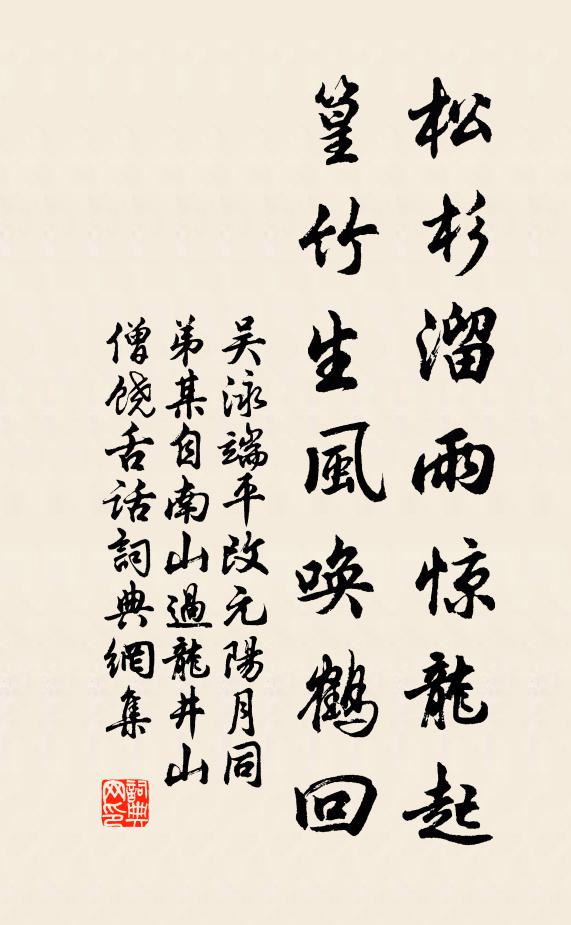 松杉溜雨惊龍起
篁竹生風唤鶴回
吴泳端平改元陽月同
弟某自南山過龍井山
僧饶舌話詞典網集
詞典网印